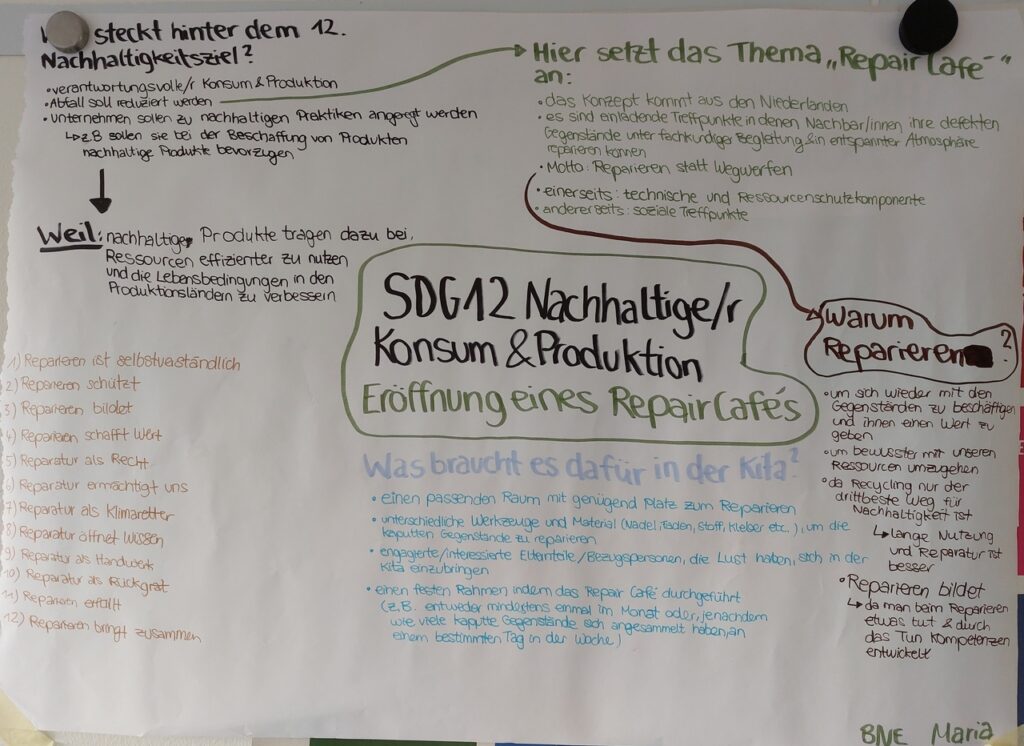 steckt hinter dem 12.
Nachhaltigkeitsziel?
• verantwortungsvolle/r Konsum & Produktion
• Abfall soll reduziert werden
• Unternehmen sollen zu nachhaltigen Praktiken angeregt werden
↳ z.B sollen sie bei der Beschaffung von Produkten
nachhaltige Produkte bevorzugen
Weil: nachhaltige Produkte tragen dazu bei,
Ressourcen effizienter zu nutzen
und die Lebensbedingungen in den
Produktionsländern zu verbessern
Hier setzt das Thema „Repair Café"
an:
• das Konzept kommt aus den Niederlanden
• es sind einladende Treffpunkte in denen Nachbar/innen ihre defekten
Gegenstände unter fachkundiger Begleitung & in entspannter Atmosphäre
reparieren können
• Motto: Reparieren statt Wegwerfen
• einerseits: technische und Ressourcenschutzkomponente
• andererseits: soziale Treffpunkte
SDG12 Nachhaltige/r
Konsum & Produktion
Eröffnung eines Repair Café's
Warum
Reparieren ?
• um sich wieder mit den
Gegenständen zu beschäftigen
und ihnen einen Wert zu
geben
• um bewusster mit unseren
Ressourcen umzugehen
• da Recycling nur der
drittbeste Weg für
Nachhaltigkeit ist
↳ lange Nutzung
und Reparatur ist
besser
• Reparieren bildet
↳ da man beim Reparieren
etwas tut & durch
das Tun Kompetenzen
entwickelt
1) Reparieren ist selbstverständlich
2) Reparieren schützt
3) Reparieren bildet
4) Reparieren schafft Wert
5) Reparatur als Recht
6) Reparatur ermächtigt uns
7) Reparatur als Klimaretter
8) Reparatur öffnet Wissen
9) Reparatur als Handwerk
10) Reparatur als Rückgrat
11) Reparieren erfüllt
12) Reparieren bringt zusammen
Was braucht es dafür in der Kita?
• einen passenden Raum mit genügend Platz zum Reparieren
• unterschiedliche Werkzeuge und Material (Nadel, Faden, Stoff, Kleber etc.), um die
kaputten Gegenstände zu reparieren
• engagierte/interessierte Elternteile/Bezugspersonen, die Lust haben, sich in der
Kita einzubringen
• einen festen Rahmen indem das Repair Café durchgeführt
(z.B. entweder mindestens einmal im Monat oder, jenachdem
wie viele kaputte Gegenstände sich angesammelt haben, an
einem bestimmten Tag in der Woche)
BNE Maria